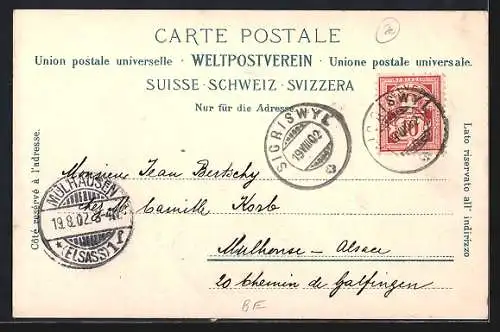 CARTE POSTALE
Union postale universelle · WELTPOSTVEREIN · Unione postale universale.
SUISSE · SCHWEIZ · SVIZZERA
Nur für die Adresse
SIGRISWYL
19 VIII 02
10
Côté réservé à l'adresse.
Lato riservato all' indirizzo
Monsieur Jean Bertschy
chez M. Camille Korb
MÜLHAUSEN
19.8.02.
(ELSASS) 1 f
Mulhouse – Alsace
20 Chemin de Galfingen